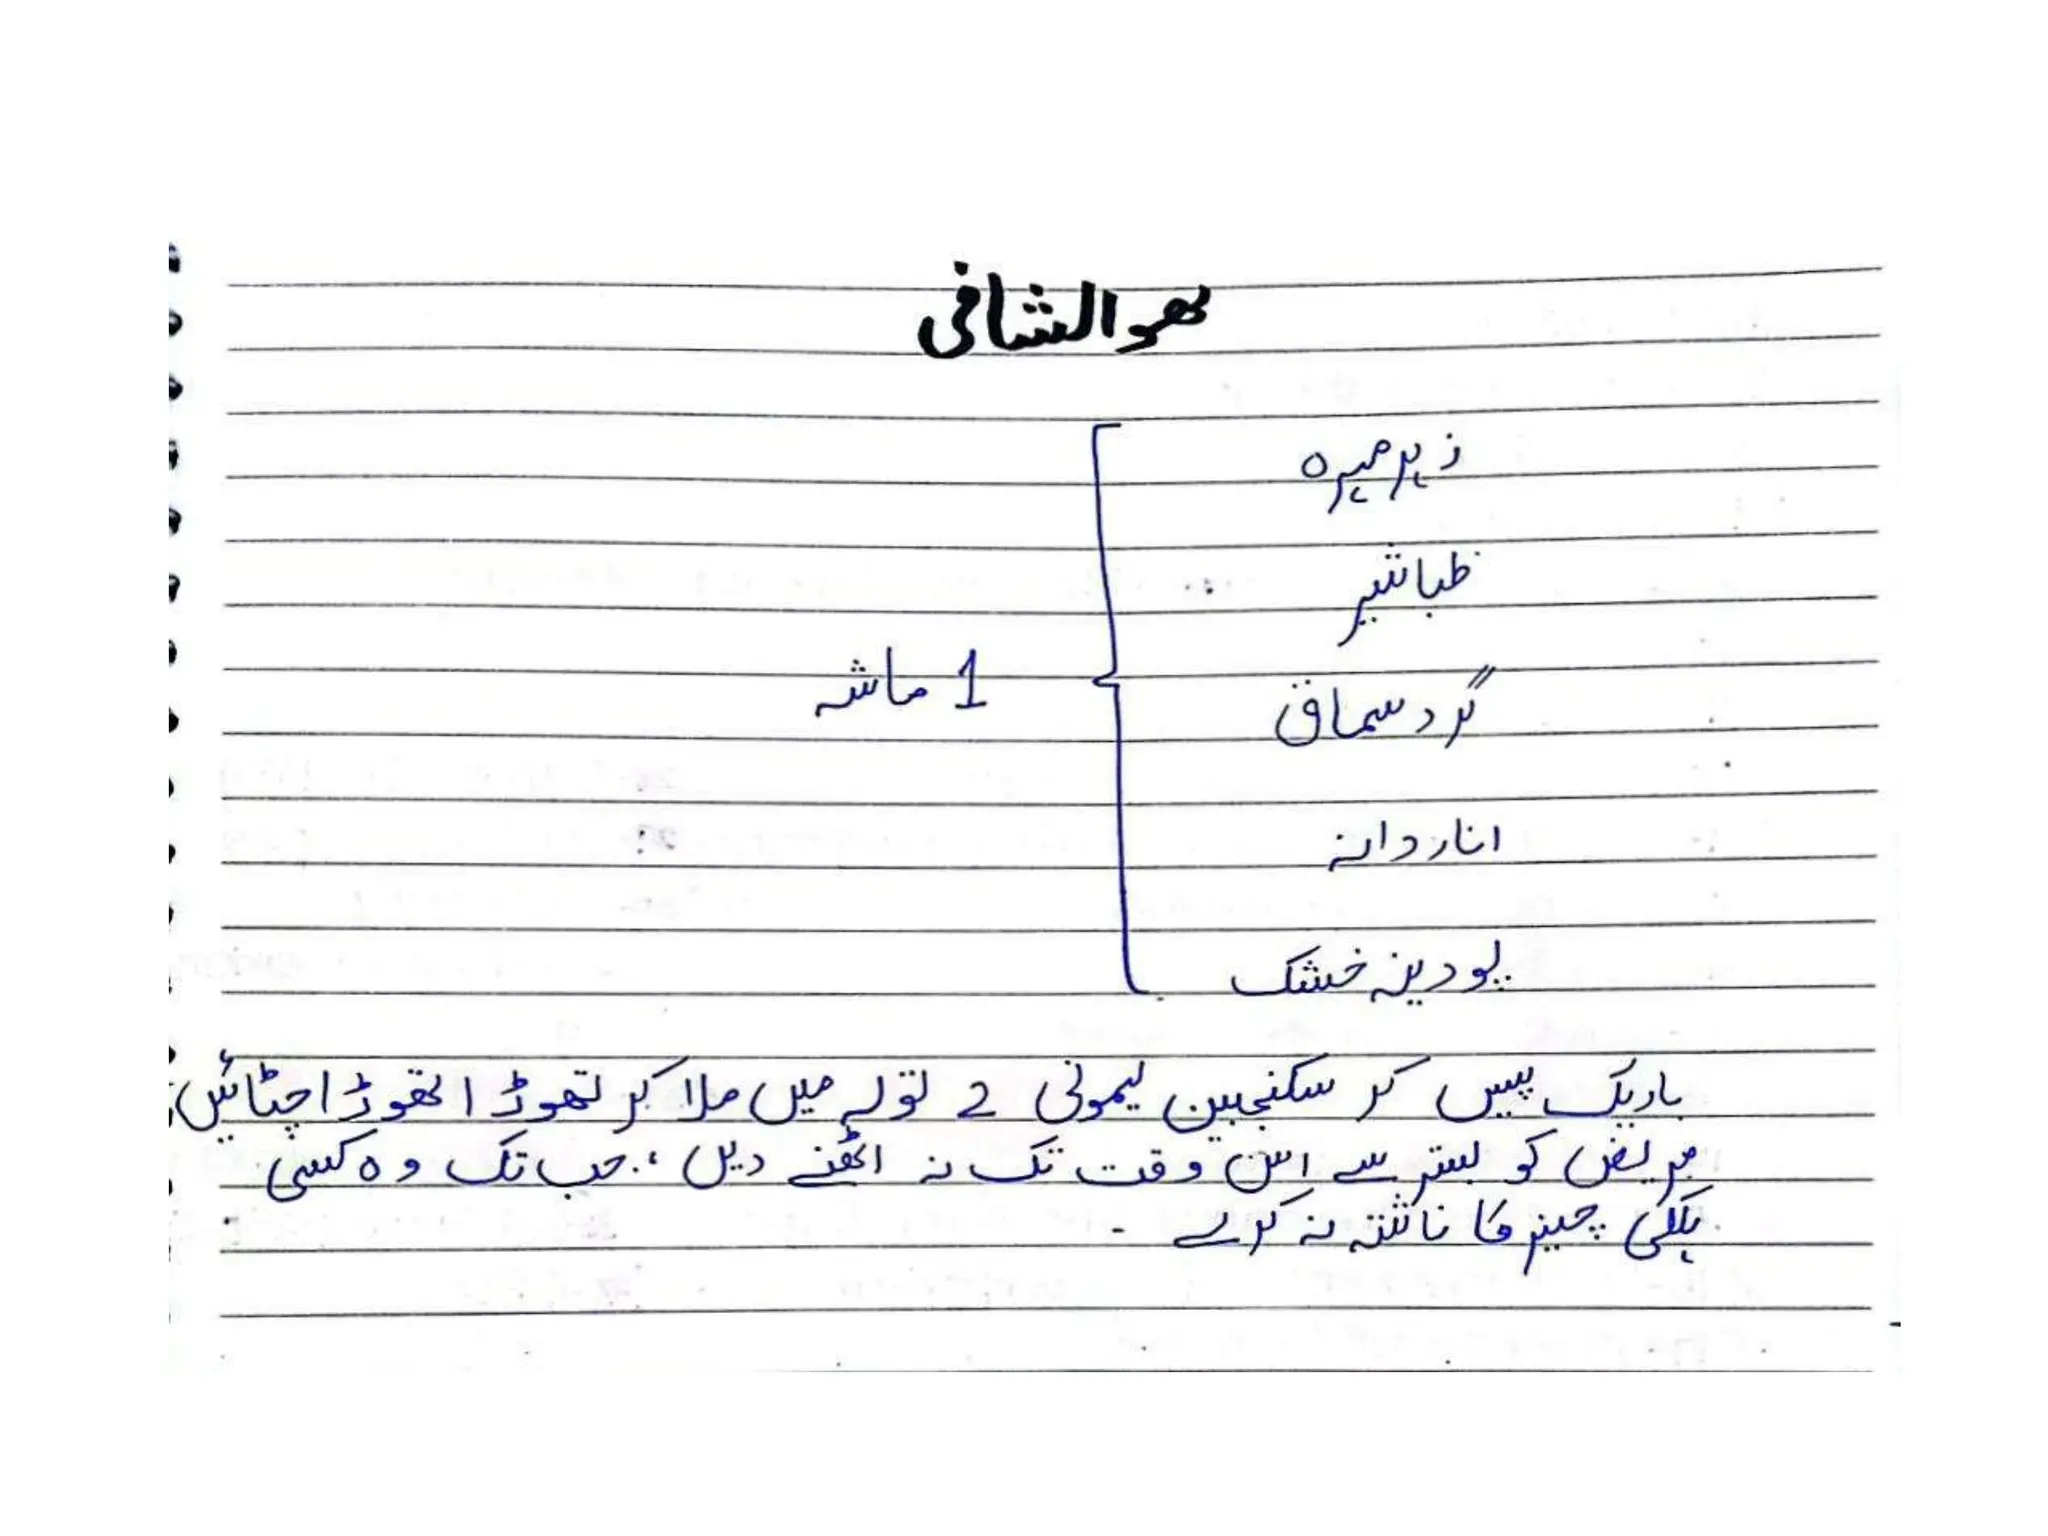 ھوالشافی
زہرمہرہ
ظباشیر
گرد سماق
1 ماشہ
انار دانہ
پودینہ خشک
باریک پیس کر سکنجبین لیمونی 2 تولہ میں ملا کر تھوڑا تھوڑا چٹائیں
مریض کو بستر سے اس وقت تک نہ اٹھنے دیں، جب تک وہ کسی
ہلکی چیز کا ناشتہ نہ کرے ۔